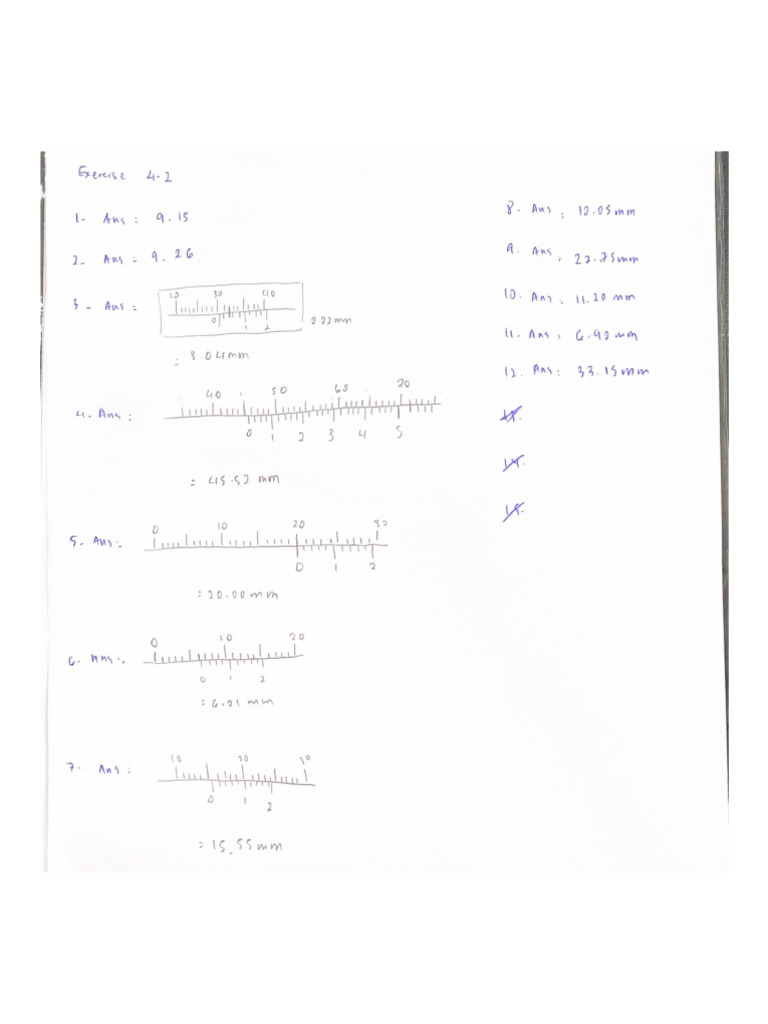 Exercise 4-2
1- Ans : 9.15
2- Ans : 9.26
3- Ans :
20 30 40
0 1 2
0.02mm
: 3.04mm
4- Ans :
40 50 60 70
0 1 2 3 4 5
: 45.52 mm
5- Ans :.
0 10 20 30
0 1 2
: 20.00 mm
6. Ans :.
0 10 20
0 1 2
: 6.21 mm
7.. Ans :
10 20 30
0 1 2
= 15.55mm
8. Ans : 10.05mm
9. Ans : 27.75mm
10. Ans : 11.20 mm
11. Ans : 6.90 mm
12. Ans : 33.15mm
14.
15.